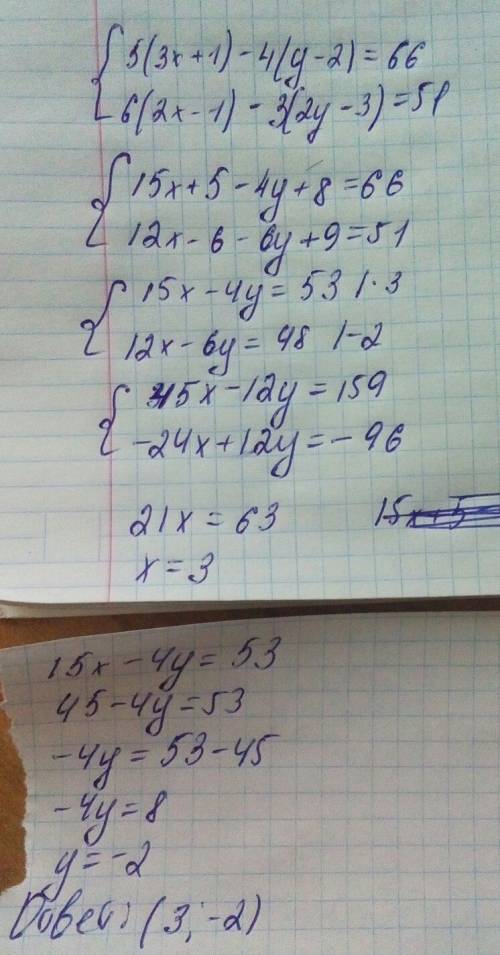 5(3x+1)-4(y-2)=66
6(2x-1)-3(2y-3)=51
15x+5-4y+8=66
12x-6-6y+9=51
15x-4y=53 |·3
12x-6y=48 |-2
45x-12y=159
-24x+12y=-96
21x=63
15x+5
x=3
15x-4y=53
45-4y=53
-4y=53-45
-4y=8
y=-2
Ответ: (3;-2)